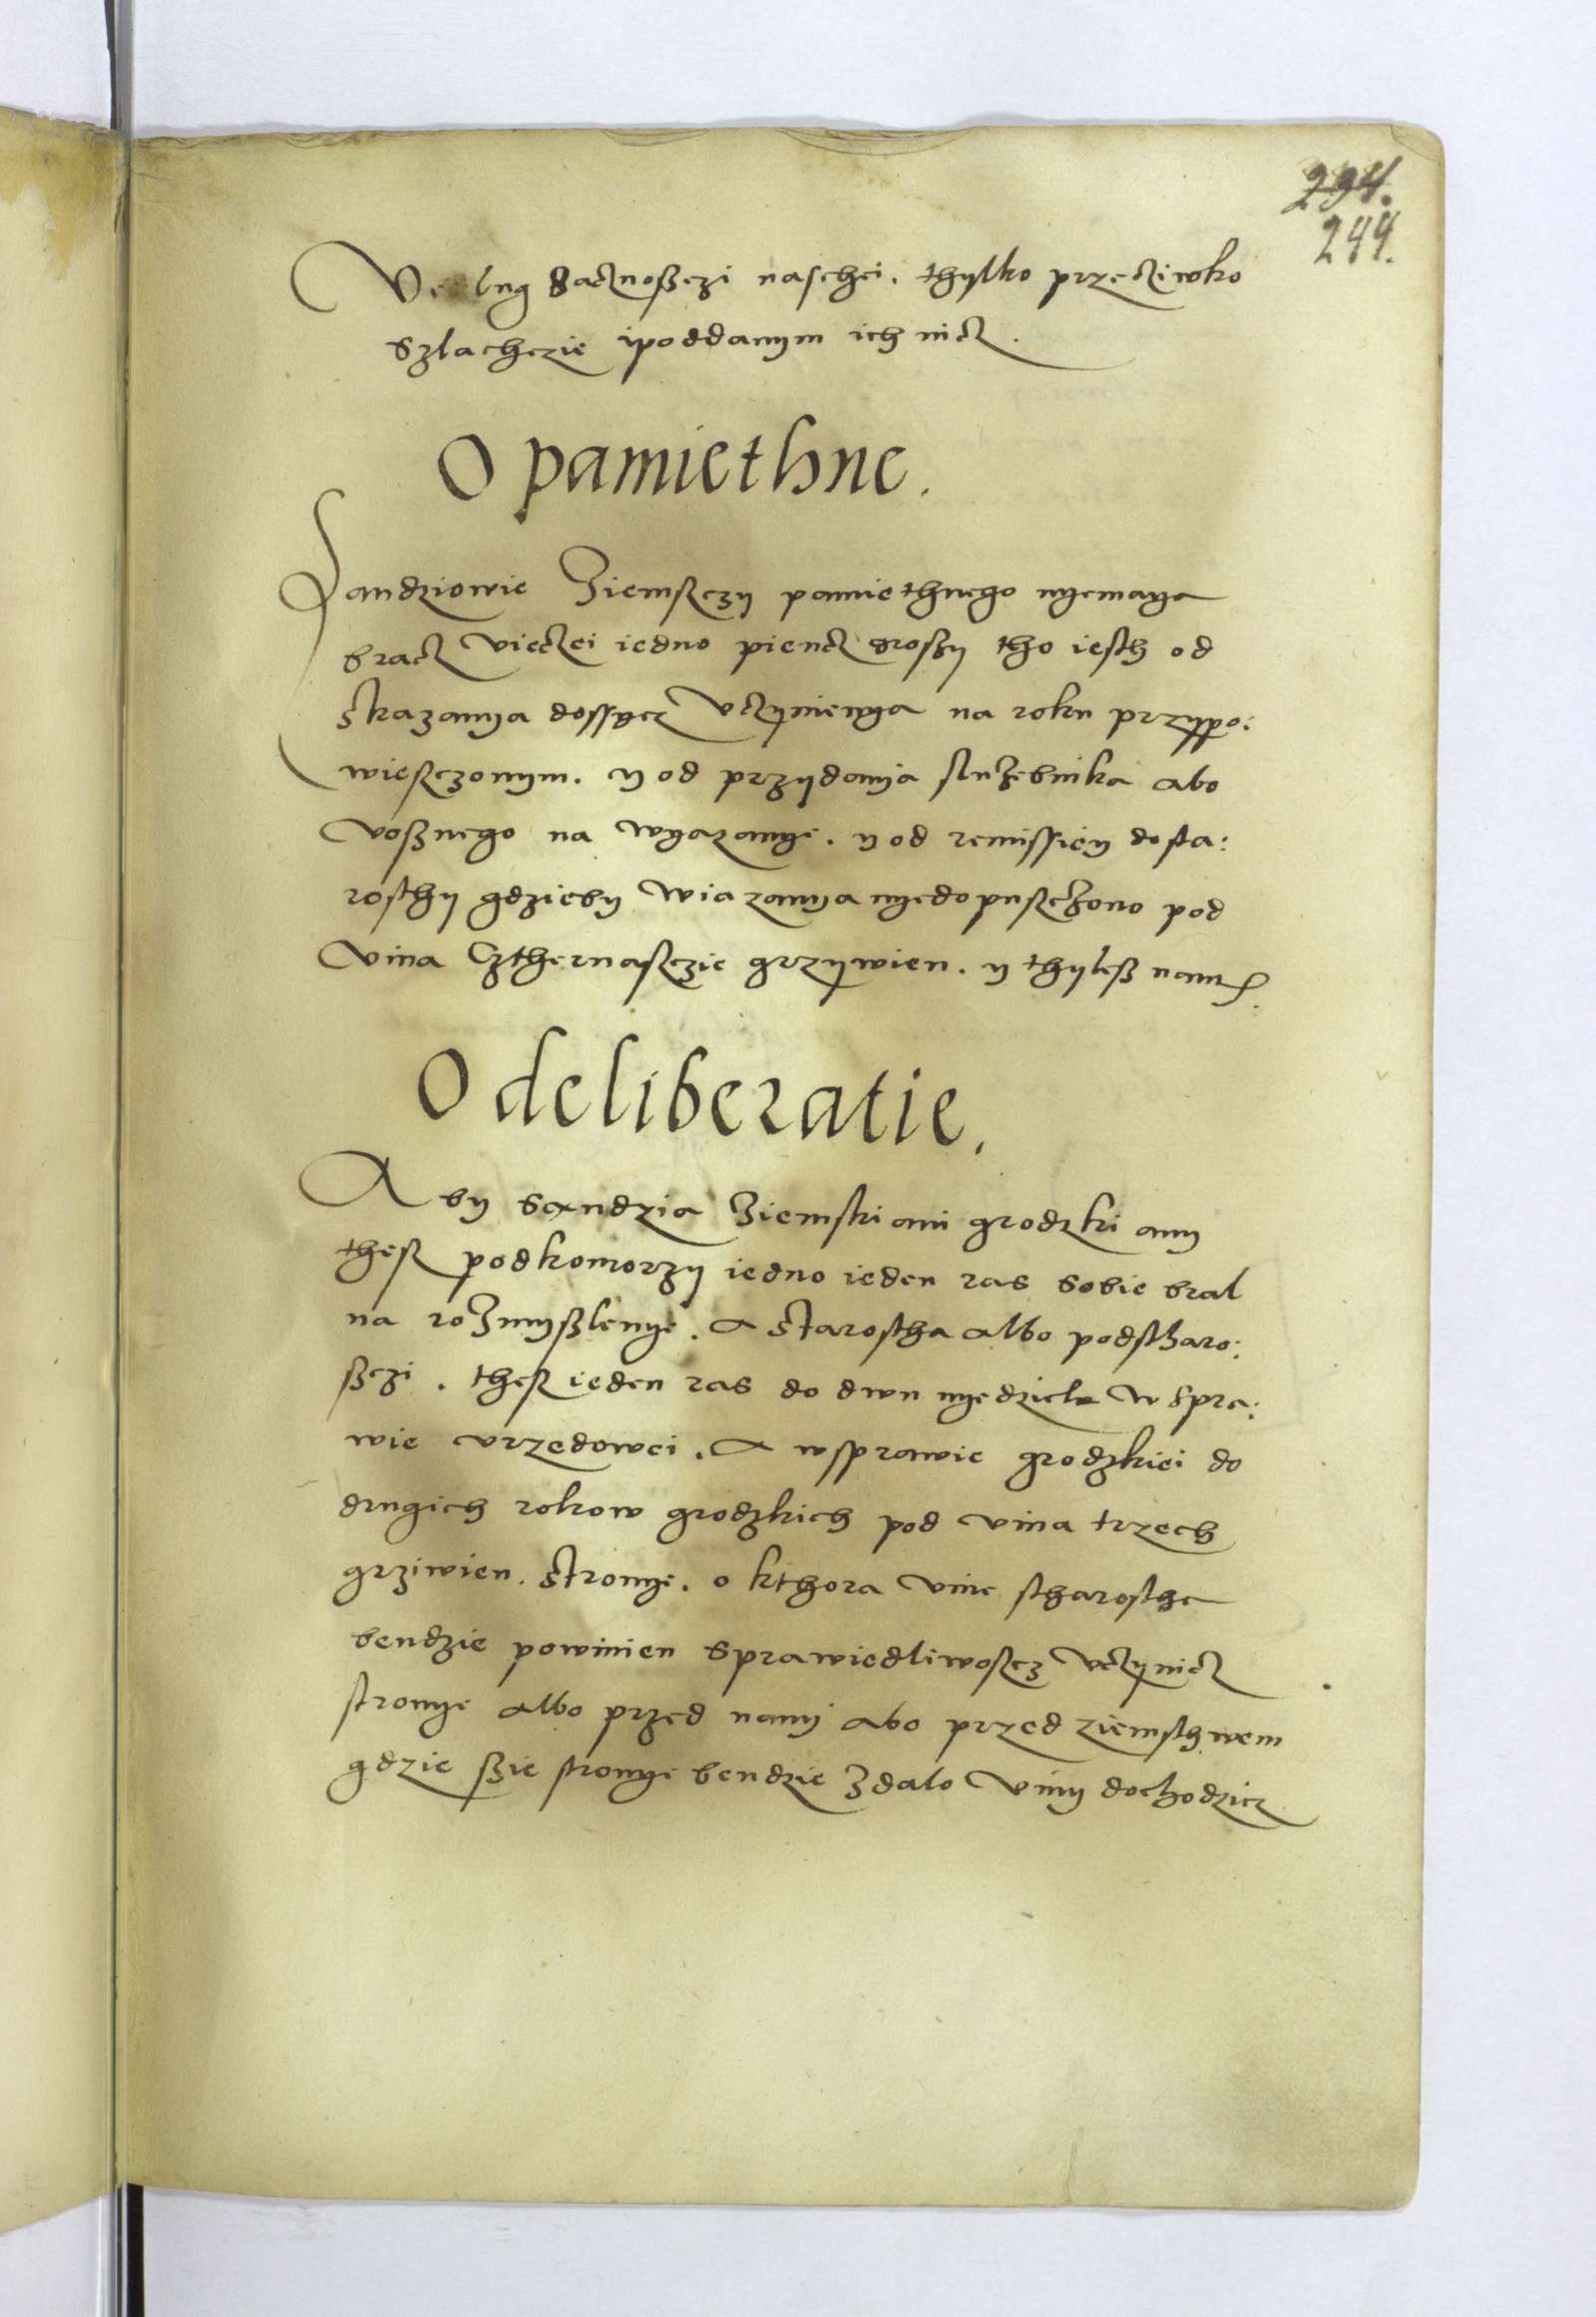 294.
244.
Vedlug bacznoßczi naschei. thylko przecziwko
szlachczie ipoddanym ich nicz.
O pamiethne.
Sandziowie Ziemsczy pamiethnego nyemaya
bracz vieczei iedno piencz großy tho iesth od
skazanya dossycz vczynienya na roku przypo:
wiesczonym. y od przydanya służebnika abo
voßnego na wyazanye. y od remissiey do sta:
rosthy gdzieby wiazanya nyedopusczono pod
vina Czthernasczie grzywien. y thyleß nam
O deliberatie.
Aby sandzia Ziemski ani grodzki any
thesz podkomorzy iedno ieden ras sobie bral
na roZmyßlenye. A starostha albo podstharo:
ßczi. thesz ieden ras do dwu nyedziel w spra:
wie vrzedowei. A wsprawie grodzkiei do
drugich rokow grodzkich pod vina trzech
grziwien. stronye. o kthora vine stharostha
bendzie powinien sprawiedliwoscz vczynicz
stronye albo przed namy abo przed ziemsthwem
gdzie ßie stronye bendzie Zdalo viny dochodzicz